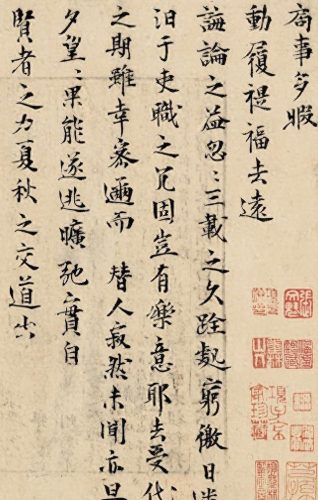 局事多暇
動履禔福去遠
誨論之益忽〻三載之久跧處窮徼日迷
汩于吏職之冗固豈有樂意耶去受代
之期雖幸密邇而替人寂然未聞亦旦
夕望〻果能遂逃曠弛實自
賢者之力夏秋之交道出
項子京家珍藏